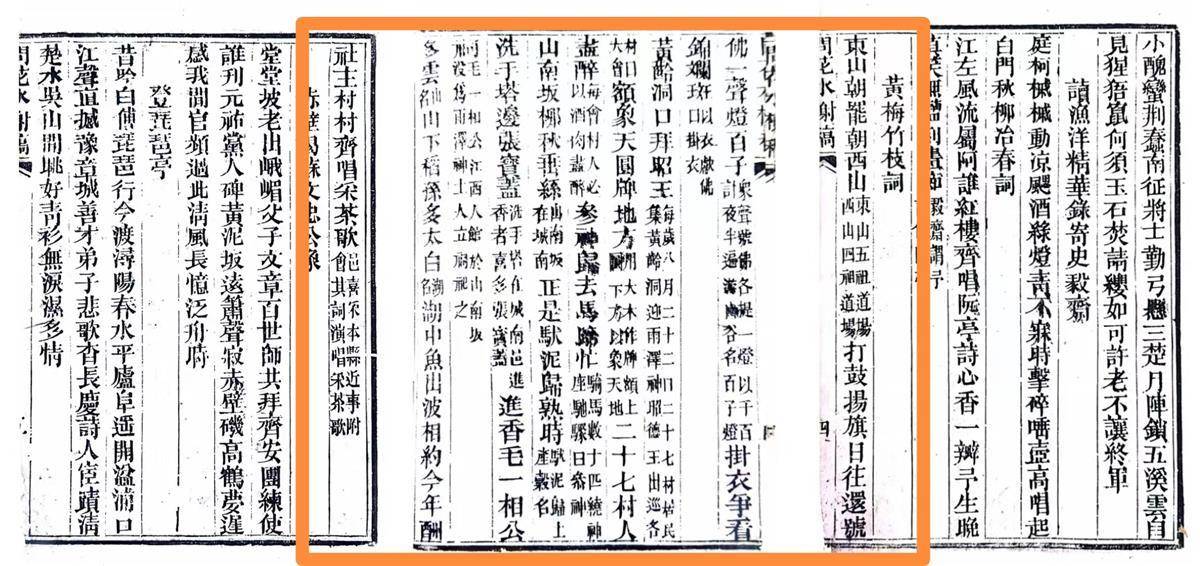 小醜蠻荆蠢南征將士勤弓懸三楚月陣鎖五溪雲自
見猩猖窟何須玉石焚請纓如可許老不讓終軍
讀漁洋精華錄寄史毅齋
庭柯槭槭動凉颸酒綠燈青不寐時擊碎唾壺高唱起
白門秋柳冶春詞
江左風流屬阿誰紅樓齊唱阮亭詩心香一瓣平生晚
黃梅竹枝詞
東山朝罷朝西山東山五祖道場西山四祖道場打鼓揚旗日往還號
問花水榭稿 四
佛一聲燈百子眾聲號佛各提一燈以千百計夜半過滿山谷名百子燈掛衣爭看
錦襴好以衣獻佛口掛衣
黃齡洞口拜昭王每歲八月二十二日二十七村居民集黃齡洞迎雨澤神昭德王出巡各
村口大會額象天圓牌地方用大木作牌額上下方以象天地二十七村人
盡醉每會村人必以酒肉盡醉參神歸去馬蹄忙騎馬數十匹繞神座馳驟曰參神
山南坂柳秋垂絲山南坂在城南正是馱泥歸熟時馱泥歸上產穀名
洗手塔邊張寶蓋洗手塔在城南邑進香者喜多張寶蓋進香毛一相公
毛一相公江西人館於山南坂歿為雨澤神土人立廟祀之
多雲名山下稻孫多太白湖名湖中魚出波相約今年酬
社主村村齊唱采茶歌邑喜采本縣近事附會其詞演唱采茶歌
赤壁謁蘇文忠公像
堂堂坡老出峨嵋父子文章百世師共拜齊安團練使
誰刊元祐黨人碑黃泥坂遠簫聲寂赤壁磯高鶴夢遲
感我閒官頻過此清風長憶泛舟時
登琵琶亭
昔吟白傅琵琶行今渡潯陽春水平廬阜遥開湓浦口
江聲直撼豫章城善才弟子悲歌杳長慶詩人宦蹟清
楚水吳山閒眺好青衫無淚濕多情
問花水榭稿